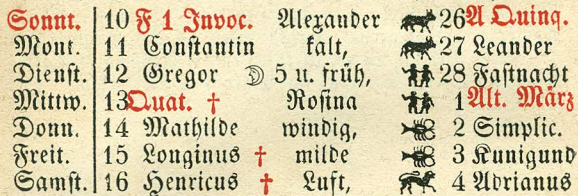 Sonnt. 10 F 1 Invoc. Alexander 26 A Quinq.
Mont. 11 Constantin kalt, 27 Leander
Dienst. 12 Gregor ☽ 5 u. früh, 28 Fastnacht
Mittw. 13 Quat. † Rosina 1 Alt. März
Donn. 14 Mathilde windig, 2 Simplic.
Freit. 15 Longinus † milde 3 Kunigund
Samst. 16 Henricus † Luft, 4 Adrianus